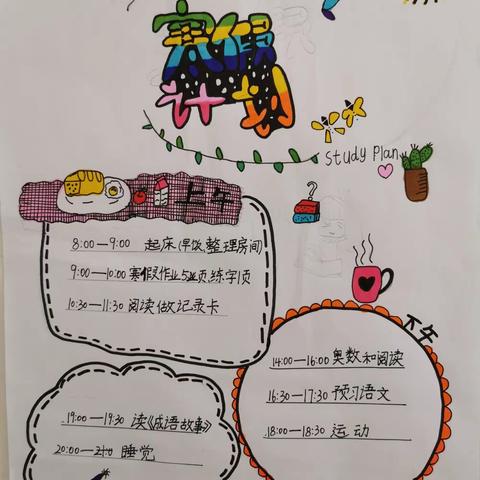 寒假
计划
Study Plan
上午
8:00—9:00 起床(早饭,整理房间)
9:00—10:00 寒假作业5页,练字1页
10:30—11:30 阅读做记录卡
下午
14:00—16:00 奥数和阅读
16:30—17:30 预习语文
18:00—18:30 运动
19:00—19:30 读《成语故事》
20:00— 睡觉